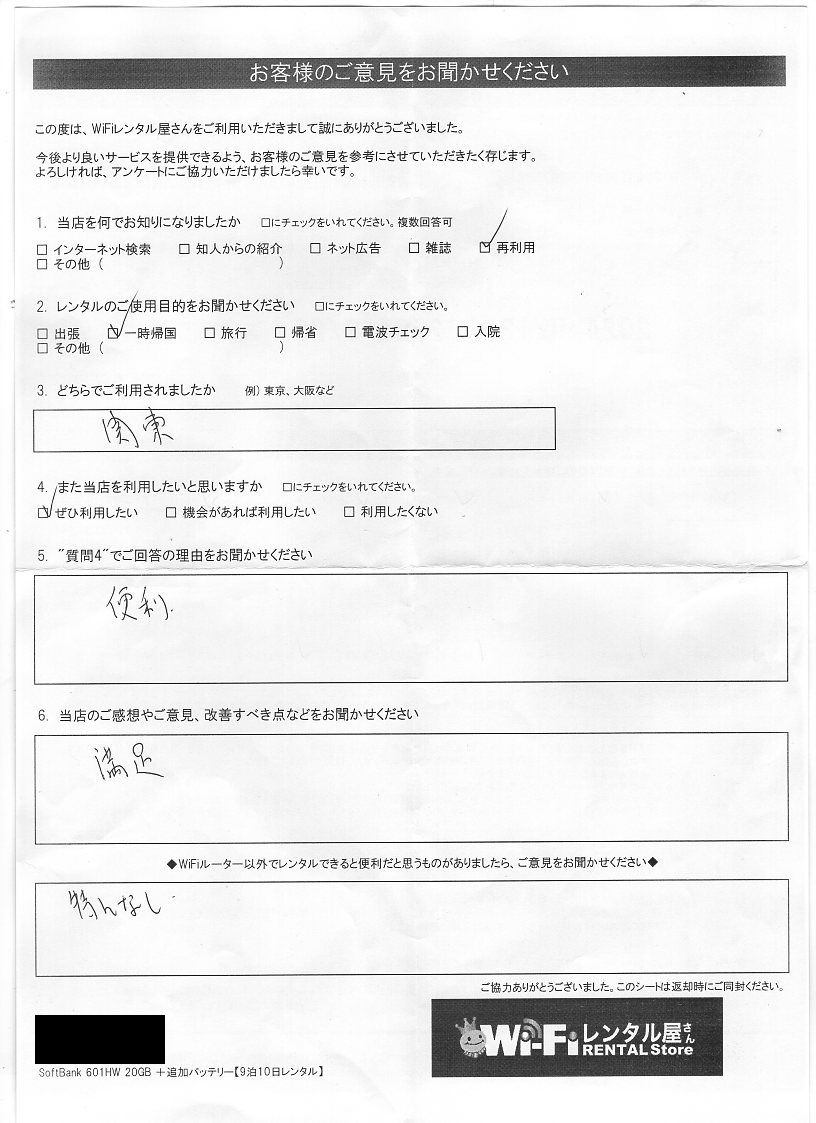 お客様のご意見をお聞かせください
この度は、WiFiレンタル屋さんをご利用いただきまして誠にありがとうございました。
今後より良いサービスを提供できるよう、お客様のご意見を参考にさせていただきたく存じます。
よろしければ、アンケートにご協力いただけましたら幸いです。
1. 当店を何でお知りになりましたか □にチェックをいれてください。複数回答可
□ インターネット検索 □ 知人からの紹介 □ ネット広告 □ 雑誌 ☑ 再利用
□ その他 ( )
2. レンタルのご使用目的をお聞かせください □にチェックをいれてください。
□ 出張 ☑ 一時帰国 □ 旅行 □ 帰省 □ 電波チェック □ 入院
□ その他 ( )
3. どちらでご利用されましたか 例) 東京、大阪など
関東
4. また当店を利用したいと思いますか □にチェックをいれてください。
☑ ぜひ利用したい □ 機会があれば利用したい □ 利用したくない
5. "質問4"でご回答の理由をお聞かせください
便利.
6. 当店のご感想やご意見、改善すべき点などをお聞かせください
満足
◆WiFiルーター以外でレンタルできると便利だと思うものがありましたら、ご意見をお聞かせください◆
特になし
ご協力ありがとうございました。このシートは返却時にご同封ください。
Wi-Fiレンタル屋さん
RENTAL Store
SoftBank 601HW 20GB +追加バッテリー【9泊10日レンタル】